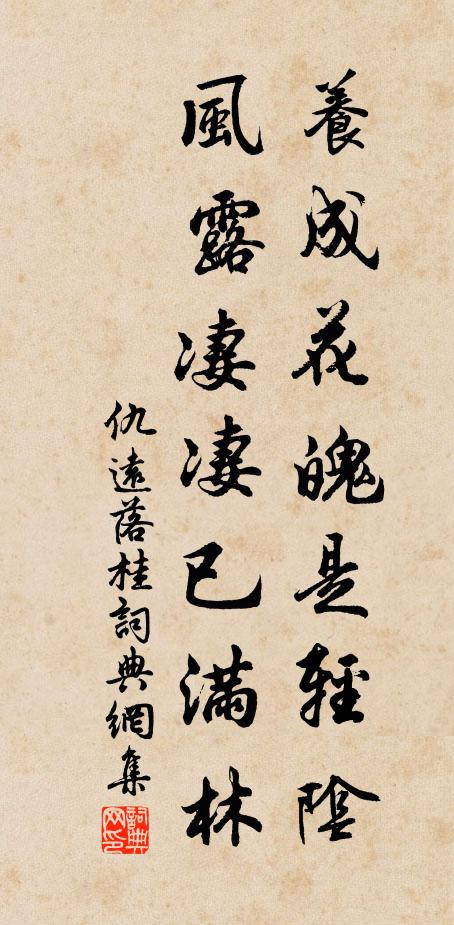 養成花魄是輕陰
風露淒淒已滿林
仇遠落桂詞典網集
詞典网印